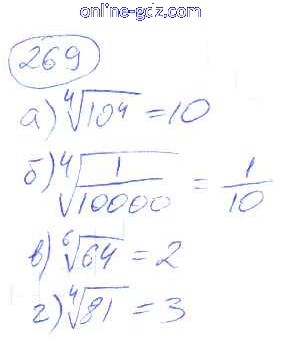 online-gdz.com
269
а) ⁴√10⁴ = 10
б) ⁴√(1/10000) = 1/10
в) ⁶√64 = 2
г) ⁴√81 = 3